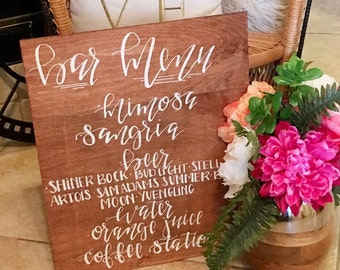 bar menu
mimosa
sangria
beer
·SHINER BOCK·BUD LIGHT·STELLA
ARTOIS·SAM ADAMS SUMMER·
MOON·YUENGLING·
water
orange juice
coffee station